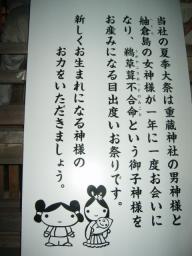 当社の夏季大祭は重蔵神社の男神様と
舳倉島の女神様が一年に一度お会いに
なり、鵜草葺不合命という御子神様を
お産みになる目出度いお祭りです。
新しくお生まれになる神様の
お力をいただきましょう。